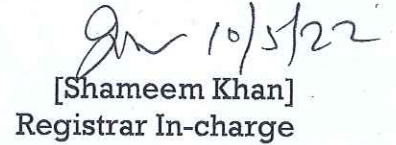 10/5/22
[Shameem Khan]
Registrar In-charge